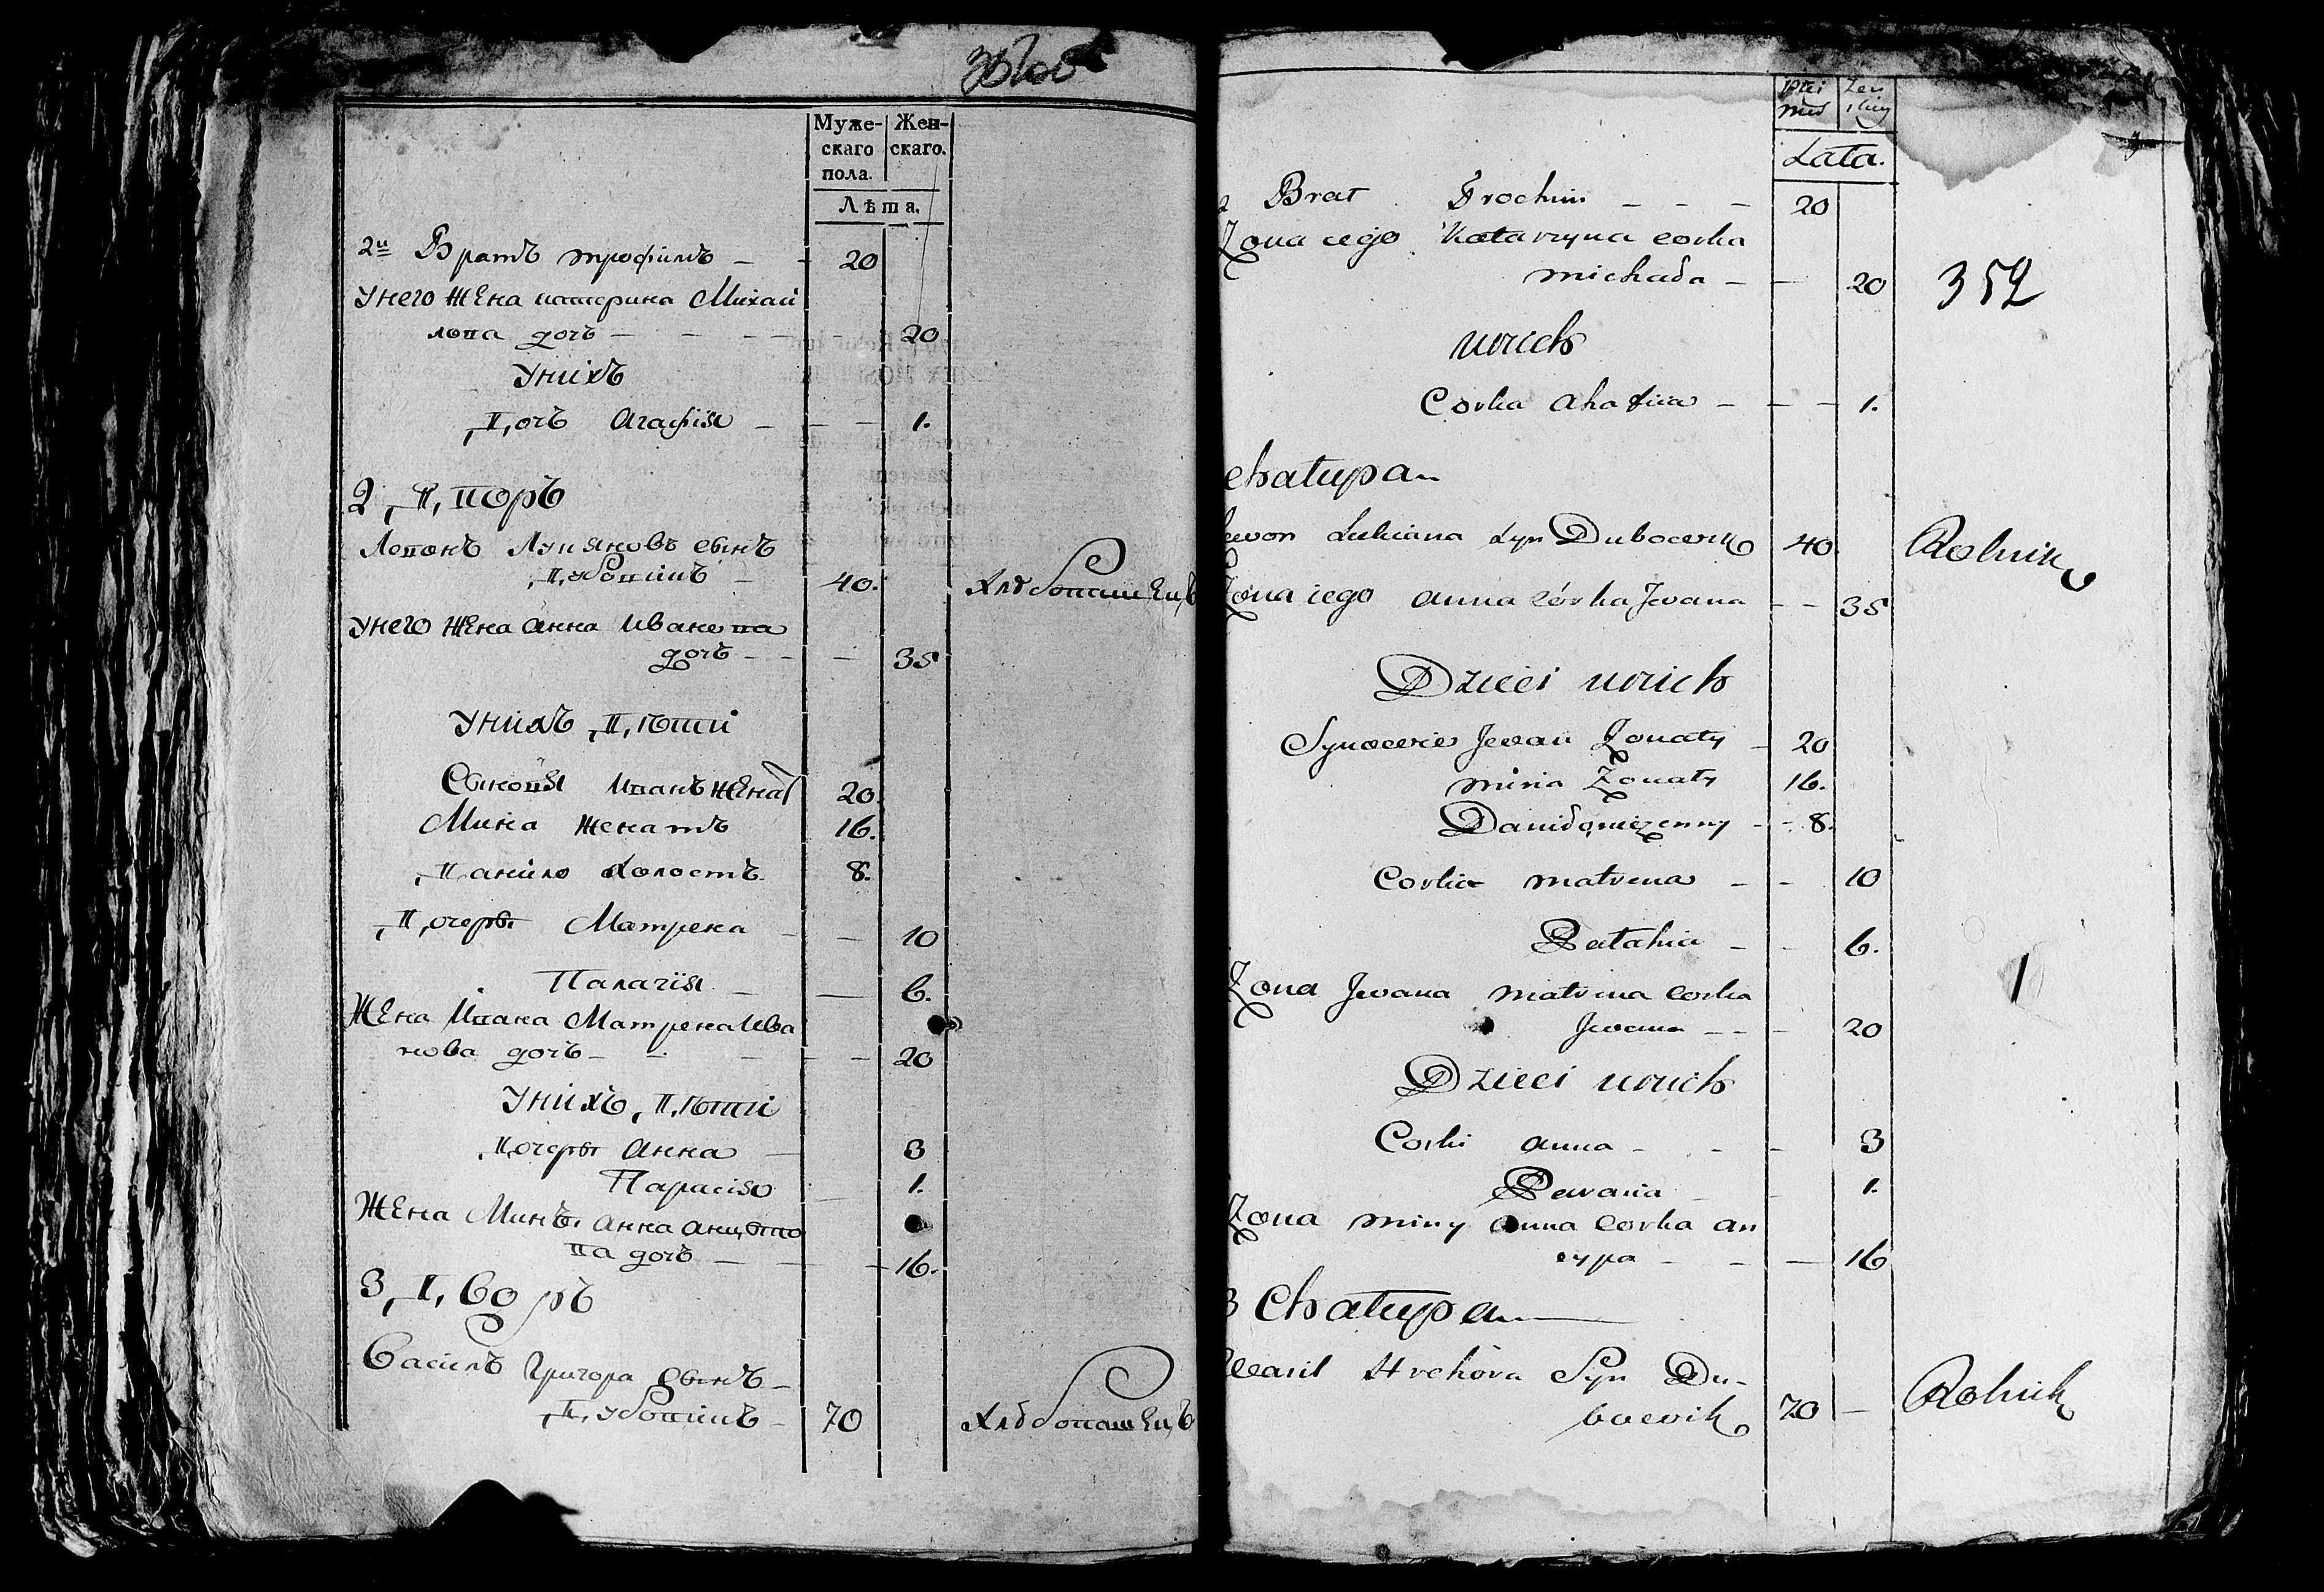 Муже-
скаго
пола.
Жен-
скаго.
Лѣта.
2й Братъ трофимъ — — 20
Унего жена катерина Михай
лова дочъ — — — — 20
Унихъ
Дочъ агафія — — — 1.
2, Дворъ
Левонъ Лукяновъ сынъ
Дубовикъ — 40. Хлѣбопашецъ
Унего жена анна Иванова
дочъ — — — 35
Унихъ Дѣти
Сыновя Иванъ женатъ 20
Мина женатъ 16.
Данило холостъ 8.
Дочери Матрена — — 10
Палагія — — 6.
Жена Ивана Матрена Ива
нова дочъ — — — — 20
Унихъ Дѣти
Дочери анна — 3
Парасія — 1.
Жена Мины анна анцыпо
ва дочъ — — — 16.
3, Дворъ
Василъ Григора сынъ —
Дубовикъ — 70 Хлѣбопашецъ
Lata.
Brat Trochim — — — 20
Zona iego Katarzyna corka
michała — — 20
352
urich
Corka ahafiia — — — 1.
chałupa
Lewon Lukiana syn Dubowik 40 Rolnik
Zona iego anna córka Jwana — — 35
Dzieci urich
Synowie Jwan Żonaty — 20
mina Żonaty 16.
Daniło nieżenny — — 8.
Corka matrena — — 10
Palahia — — 6.
Żona Jwana matrena corka
Jwana — — — 20
Dzieci urich
Corki anna — — — 3
Parasia — — 1.
Żona miny anna corka an
cypa — — — 16
3 Chałupa
Wasil Hrehora Syn Du-
bowik 70 — Rolnik